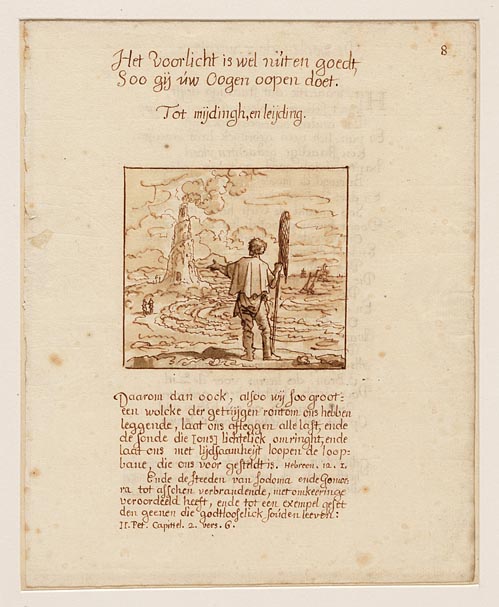 8
Het Voorlicht is wel nut en goedt,
Soo gij úw Oogen oopen doet.
Tot mijdingh, en leijding.
Daarom dan oock, alsoo wij soo groot=
een wolcke der getuijgen rontom ons hebben
leggende, laat ons afleggen alle last, ende
de sonde die [ons] lichtelick omringht, ende
laat ons met lijdsaamheijt loopen de loop-
bane, die ons voor gestelt is. Hebreen. 12. 1.
Ende de steeden van Sodoma ende Gomor-
ra tot asschen verbrandende, met omkeeringe
veroordeeld heeft, ende tot een exempel geset
den geenen die godtlooselick souden leeven:
II. Pet. Capittel. 2. vers. 6.